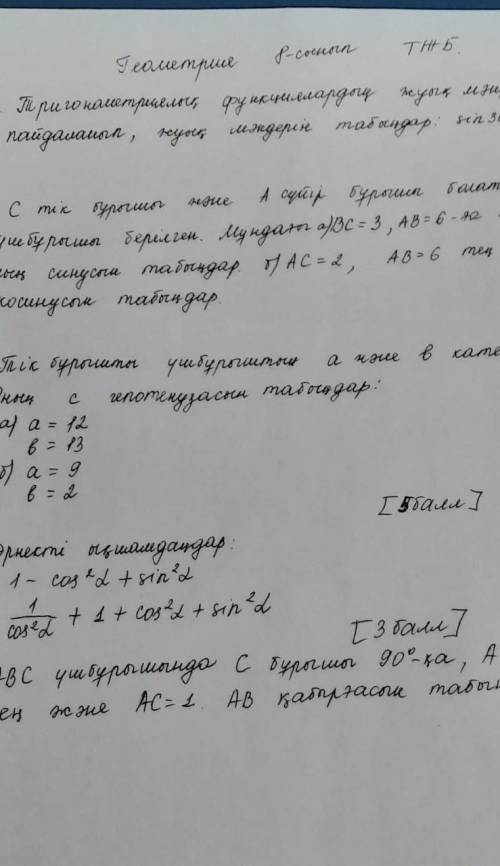 Геометрие 8-сынып ТЖБ.
Тригонометриялық функциялардың жуық
пайдаланып, жуық мәндерін табыңдар: sin 30
С тік бұрышы және А сүйір бұрышы
үшбұрышы берілген. Мұндағы а) BC = 3, AB = 6-ға
синусын табыңдар. б) AC = 2, AB = 6 тең
косинусын табыңдар.
Тік бұрышты үшбұрыштың а және в
с гепотенузасын табыңдар:
а) a = 12
в = 13
б) a = 9
в = 2
[5 балл]
өрнекті ықшамдаңдар:
1 - cos²α + sin²α
1/cos²α + 1 + cos²α + sin²α
[3 балл]
АВС үшбұрышында С бұрышы 90°-қа, А
және AC = 1. АВ қабырғасын